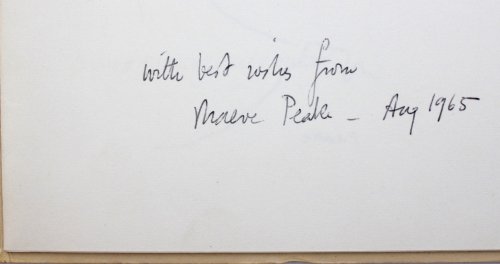 with best wishes from
Maeve Peake - Aug 1965